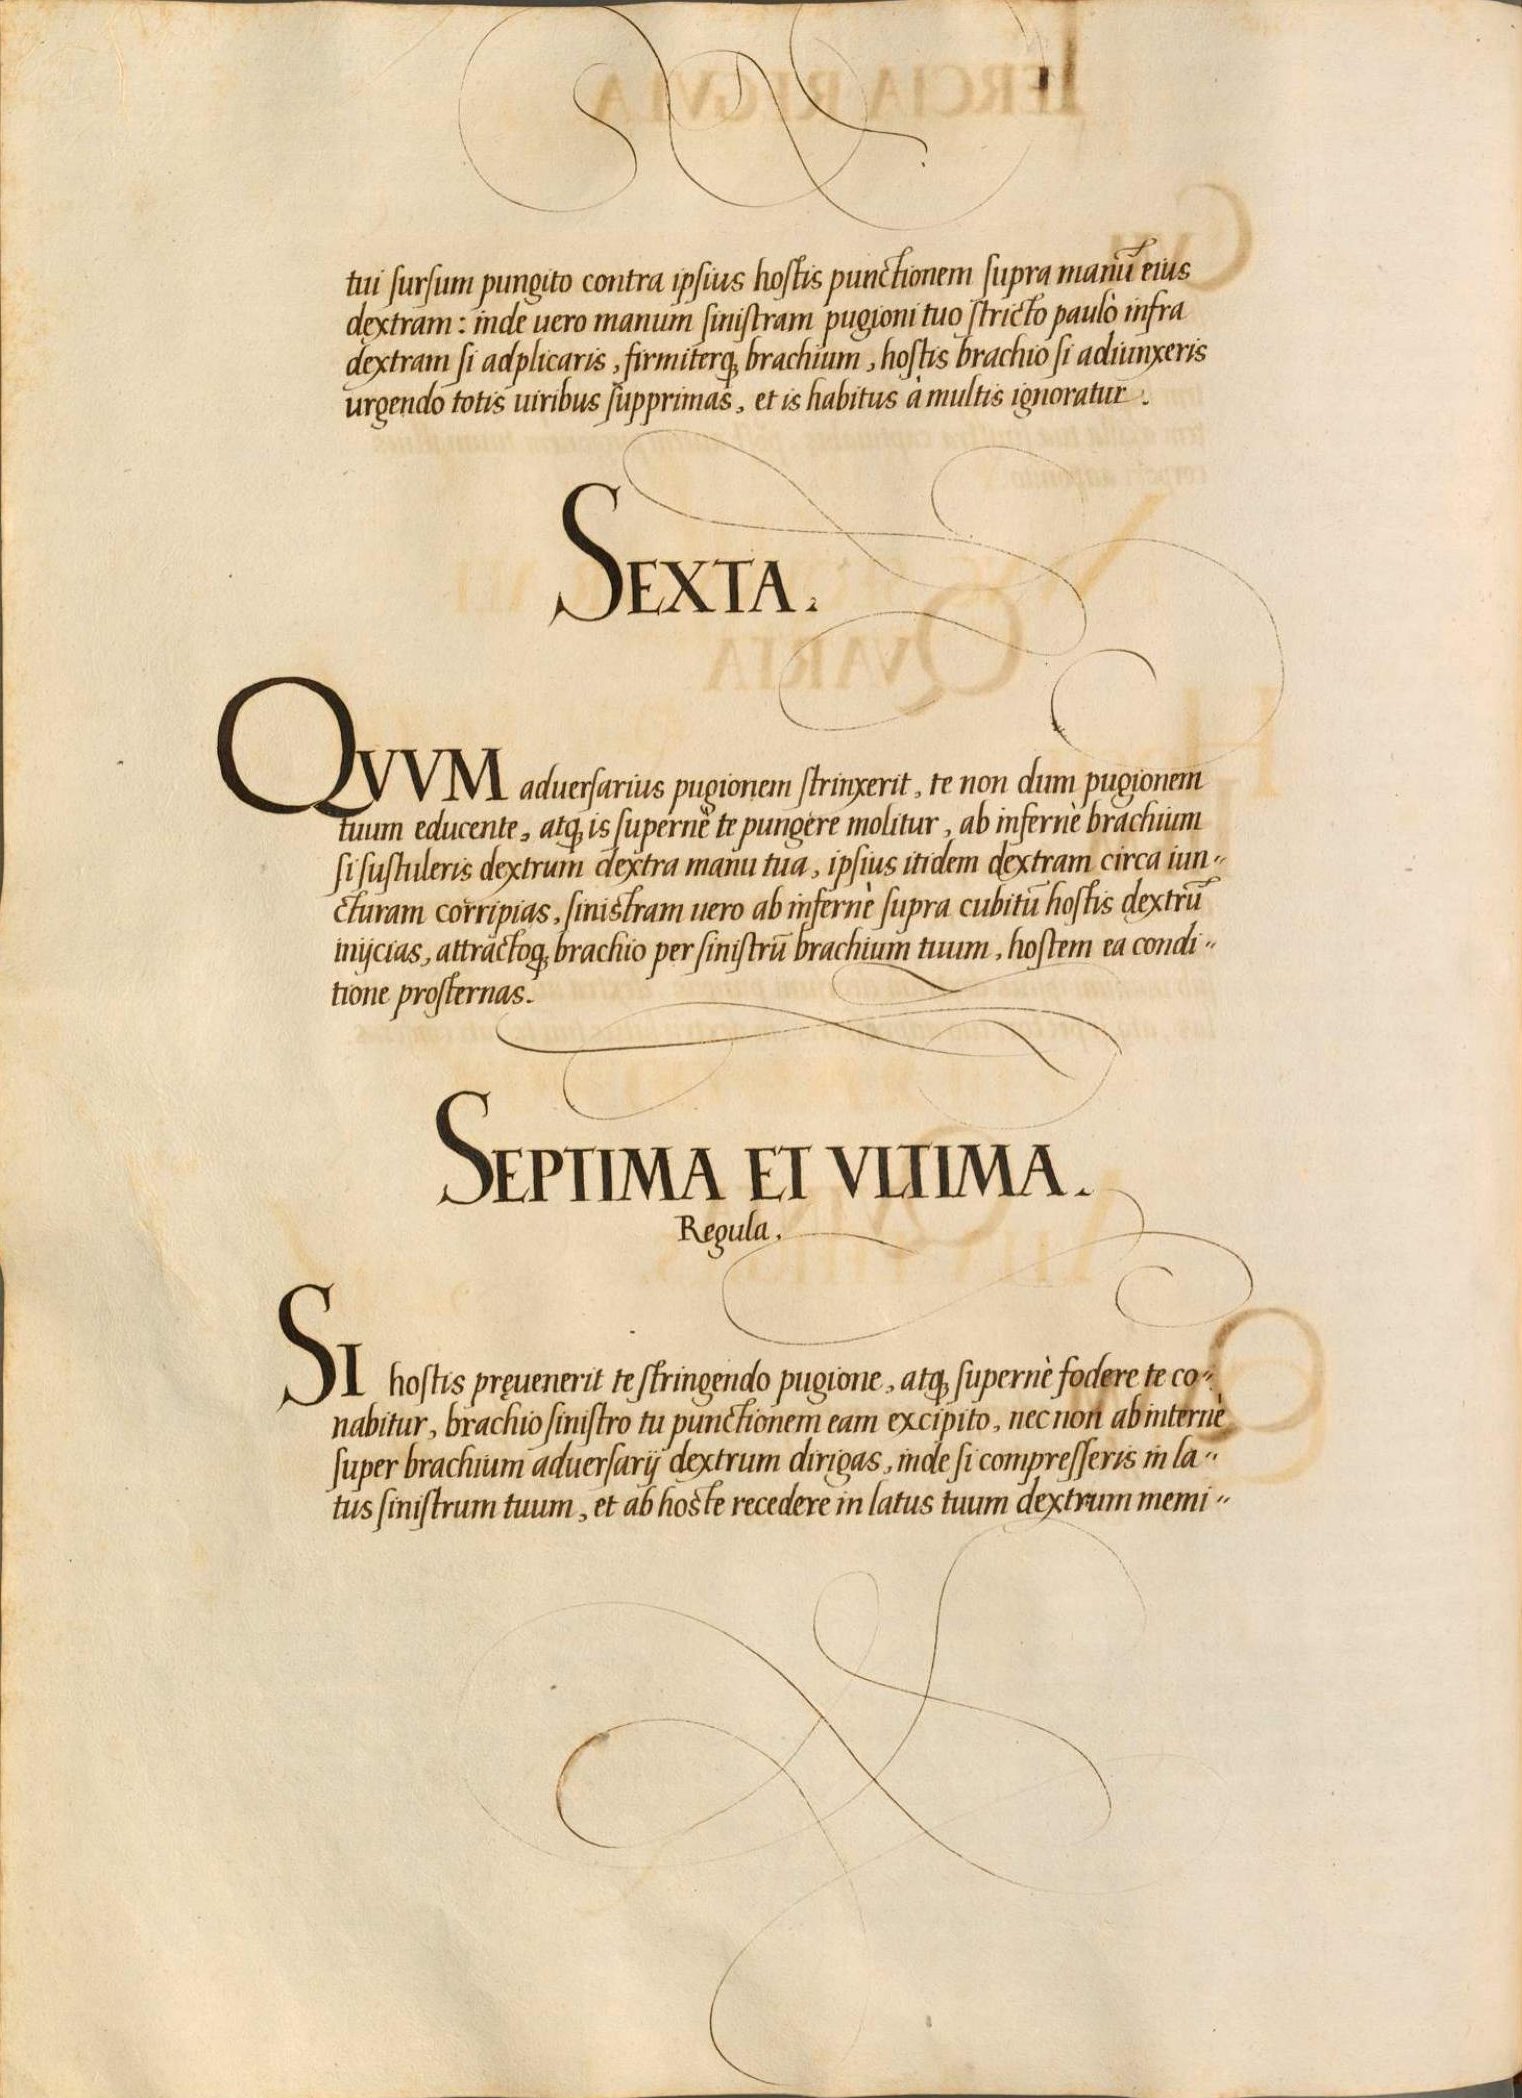 tui ſurſum pungito contra ipſius hoſtis punctionem ſupra manū eius
dextram: inde uero manum ſiniſtram pugioni tuo ſtricto paulò infra
dextram ſi adplicaris, firmiterq; brachium, hoſtis brachio ſi adiunxeris
urgendo totis uiribus ſupprimas, et is habitus à multis ignoratur.
SEXTA.
QVVM aduerſarius pugionem ſtrinxerit, te non dum pugionem
tuum educente, atq; is ſupernè te pungere molitur, ab infernè brachium
ſi ſuſtuleris dextrum dextra manu tua, ipſius itidem dextram circa iun-
cturam corripias, ſiniſtram uero ab infernè ſupra cubitū hoſtis dextrū
inijcias, attractoq; brachio per ſiniſtrū brachium tuum, hoſtem ea condi-
tione proſternas.
SEPTIMA ET VLTIMA.
Regula.
SI hoſtis pręuenerit te ſtringendo pugione, atq; ſupernè fodere te co-
nabitur, brachio ſiniſtro tu punctionem eam excipito, nec non ab internè
ſuper brachium aduerſarij dextrum dirigas, inde ſi compreſſeris in la-
tus ſiniſtrum tuum, et ab hoſte recedere in latus tuum dextrum memi-